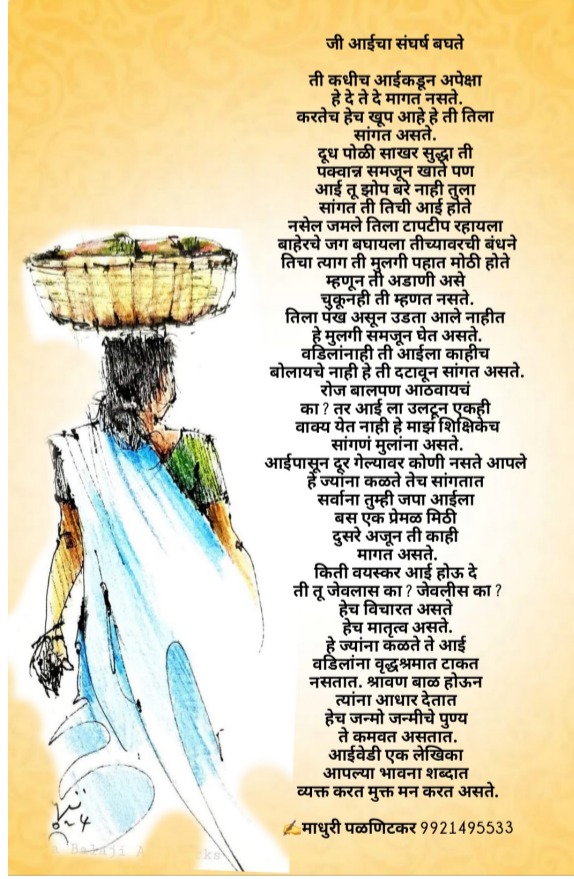 जी आईचा संघर्ष बघते
ती कधीच आईकडून अपेक्षा
हे दे ते दे मागत नसते.
करतेच हेच खूप आहे हे ती तिला
सांगत असते.
दूध पोळी साखर सुद्धा ती
पक्वान्न समजून खाते पण
आई तू झोप बरे नाही तुला
सांगत ती तिची आई होते
नसेल जमले तिला टापटीप रहायला
बाहेरचे जग बघायला तीच्यावरची बंधने
तिचा त्याग ती मुलगी पहात मोठी होते
म्हणून ती अडाणी असे
चुकूनही ती म्हणत नसते.
तिला पंख असून उडता आले नाहीत
हे मुलगी समजून घेत असते.
वडिलांनाही ती आईला काहीच
बोलायचे नाही हे ती दटावून सांगत असते.
रोज बालपण आठवायचं
का ? तर आई ला उलटून एकही
वाक्य येत नाही हे माझं शिक्षिकेच
सांगणं मुलांना असते.
आईपासून दूर गेल्यावर कोणी नसते आपले
हे ज्यांना कळते तेच सांगतात
सर्वाना तुम्ही जपा आईला
बस एक प्रेमळ मिठी
दुसरे अजून ती काही
मागत असते.
किती वयस्कर आई होऊ दे
ती तू जेवलास का ? जेवलीस का ?
हेच विचारत असते
हेच मातृत्व असते.
हे ज्यांना कळते ते आई
वडिलांना वृद्धश्रमात टाकत
नसतात. श्रावण बाळ होऊन
त्यांना आधार देतात
हेच जन्मो जन्मीचे पुण्य
ते कमवत असतात.
आईवेडी एक लेखिका
आपल्या भावना शब्दात
व्यक्त करत मुक्त मन करत असते.
✍️माधुरी पळणिटकर 9921495533
Balaji